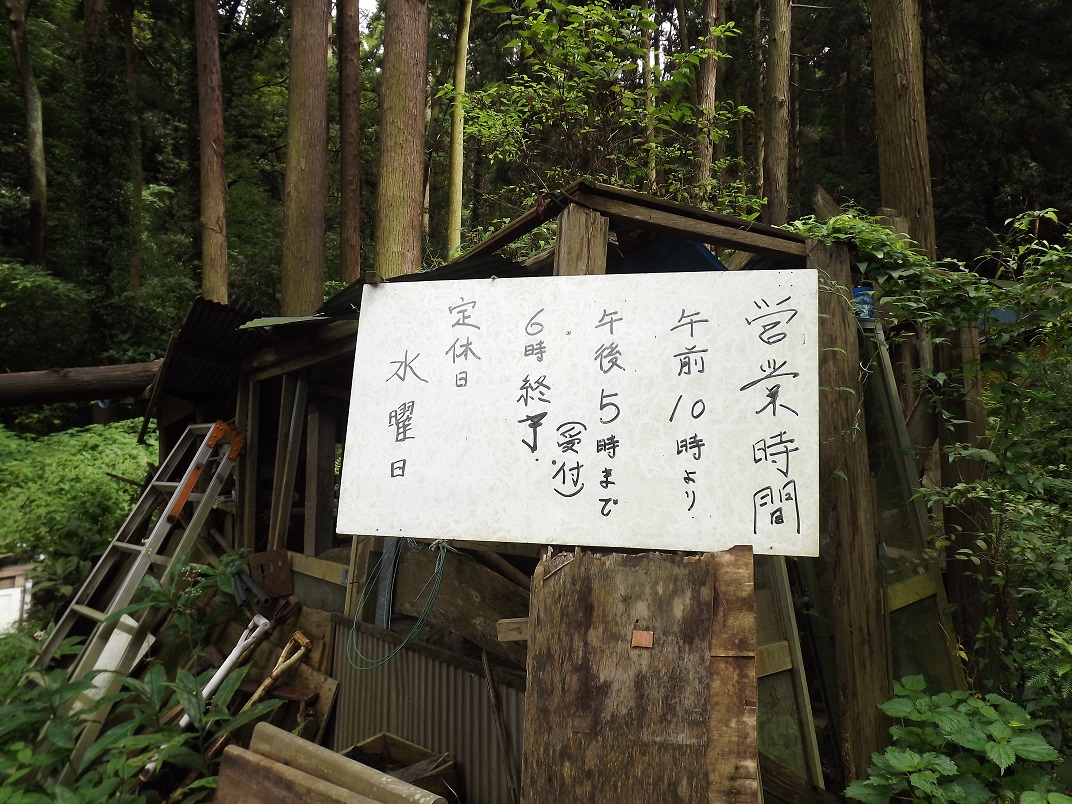 営業時間
午前10時より
午後5時まで
(受付)
6時終了
定休日
水曜日